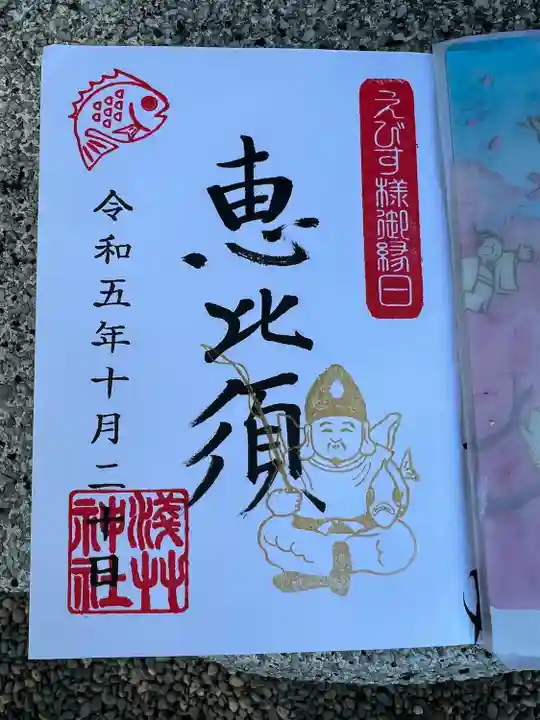 えびす様御縁日
恵比須
令和五年十月二十日
浅草
神社